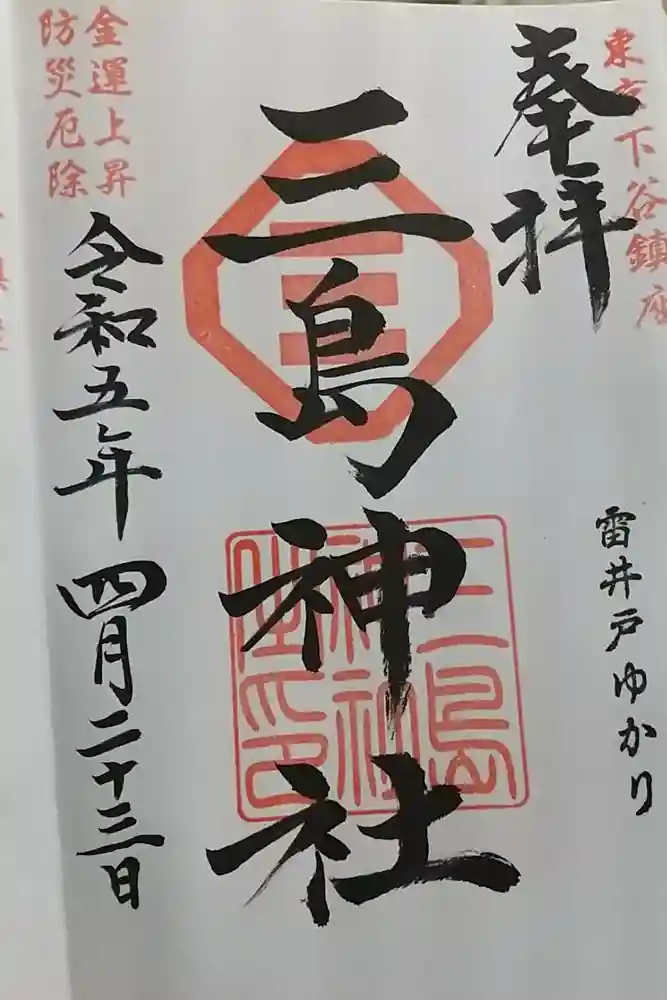 東京下谷鎮座
奉拝
雷井戸ゆかり
三島神社
三島
神社
之印
金運上昇
防災厄除
令和五年四月二十三日